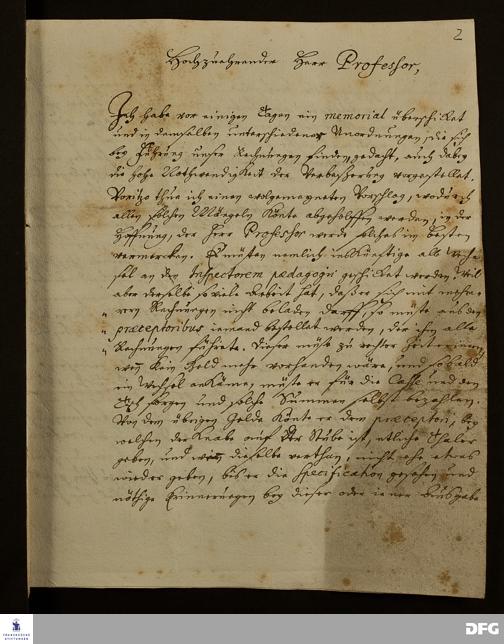 2
Hochzuehrender Herr Professor,
Ich habe vor einigen Tagen ein memorial überschicket
und in demselben unterschiedener Unordnungen, die sich
bey Führung unsrer Rechnungen finden, gedacht, auch dabey
die hohe Nothwendigkeit der Verbeßerung vorgestellet.
Voritzo thue ich einen wolgemeyneten Vorschlag, wodurch
allen solchen Mängeln könte abgeholffen werden, in der
Hoffnung, der Herr Professor werde solches im besten
vermercken. Es müsten nemlich ins künftige alle Wech-
sel an den Inspectorem paedagogii geschicket werden. Weil
aber derselbe so viele Arbeit hat, daß er sich mit mehre-
ren Rechnungen nicht beladen darff, so müste aus den
praeceptoribus iemand bestellet werden, der ihm alle
Rechnungen führete. Dieser müste zu rechter Zeit
wenn kein Geld mehr vorhanden wäre, und so bald
ein Wechsel ankäme, müste er für die Casse und den
Tisch sorgen und solche Summen selbst bezahlen.
Von dem übrigen Gelde könte er dem praeceptori, bey
welchen der Knabe auf der Stube ist, etliche Thaler
geben, und wenn dieselbe verthan, nicht ehe etwas
wieder geben, bis er die specification gesehen und
nöthige Erinnerungen bey dieser oder iener Ausgabe
FRANCKESCHE STIFTUNGEN
DFG